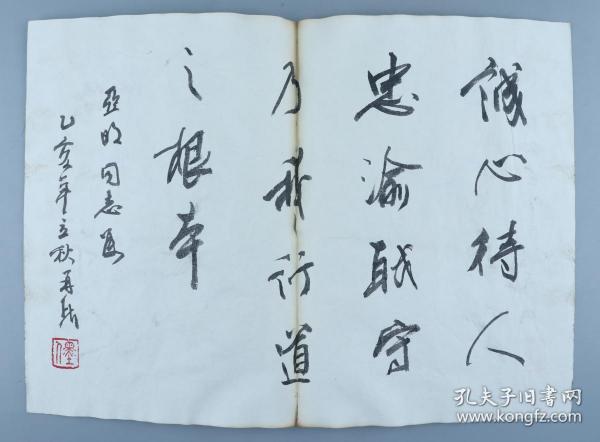 誠心待人
忠渝職守
乃我行道
之根本
亞明同志
乙亥年立秋
孔夫子旧书网
www.kongfz.com